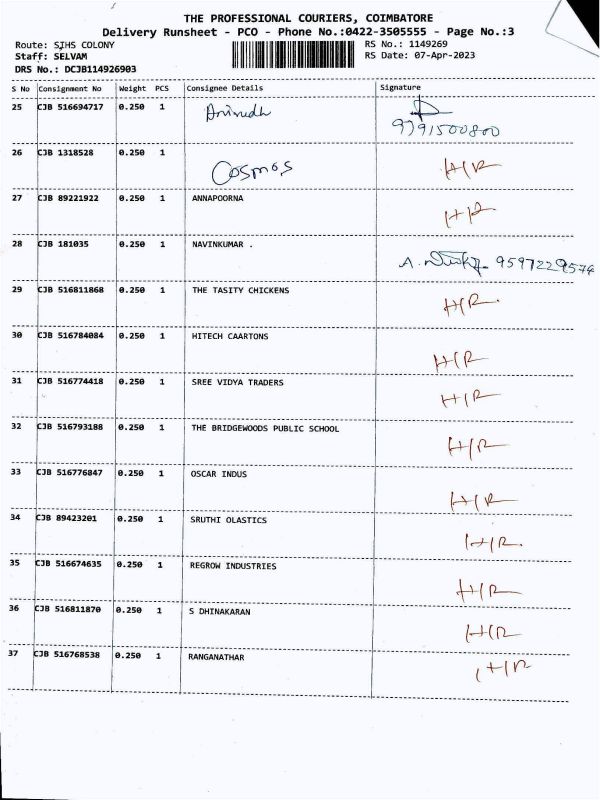 THE PROFESSIONAL COURIERS, COIMBATORE
Delivery Runsheet - PCO - Phone No.:0422-3505555 - Page No.:3
Route: SIHS COLONY RS No.: 1149269
Staff: SELVAM RS Date: 07-Apr-2023
DRS No.: DCJB114926903
S No Consignment No Weight PCS Consignee Details Signature
25 CJB 516694717 0.250 1 Anirudh
9791500800
26 CJB 1318528 0.250 1 Cosmos H/R
27 CJB 89221922 0.250 1 ANNAPOORNA H/R
28 CJB 181035 0.250 1 NAVINKUMAR . A. 9597229574
29 CJB 516811868 0.250 1 THE TASITY CHICKENS H/R.
30 CJB 516784084 0.250 1 HITECH CAARTONS H/R
31 CJB 516774418 0.250 1 SREE VIDYA TRADERS H/R
32 CJB 516793188 0.250 1 THE BRIDGEWOODS PUBLIC SCHOOL H/R
33 CJB 516776847 0.250 1 OSCAR INDUS H/R
34 CJB 89423201 0.250 1 SRUTHI OLASTICS H/R.
35 CJB 516674635 0.250 1 REGROW INDUSTRIES H/R
36 CJB 516811870 0.250 1 S DHINAKARAN H/R
37 CJB 516768538 0.250 1 RANGANATHAR H/R